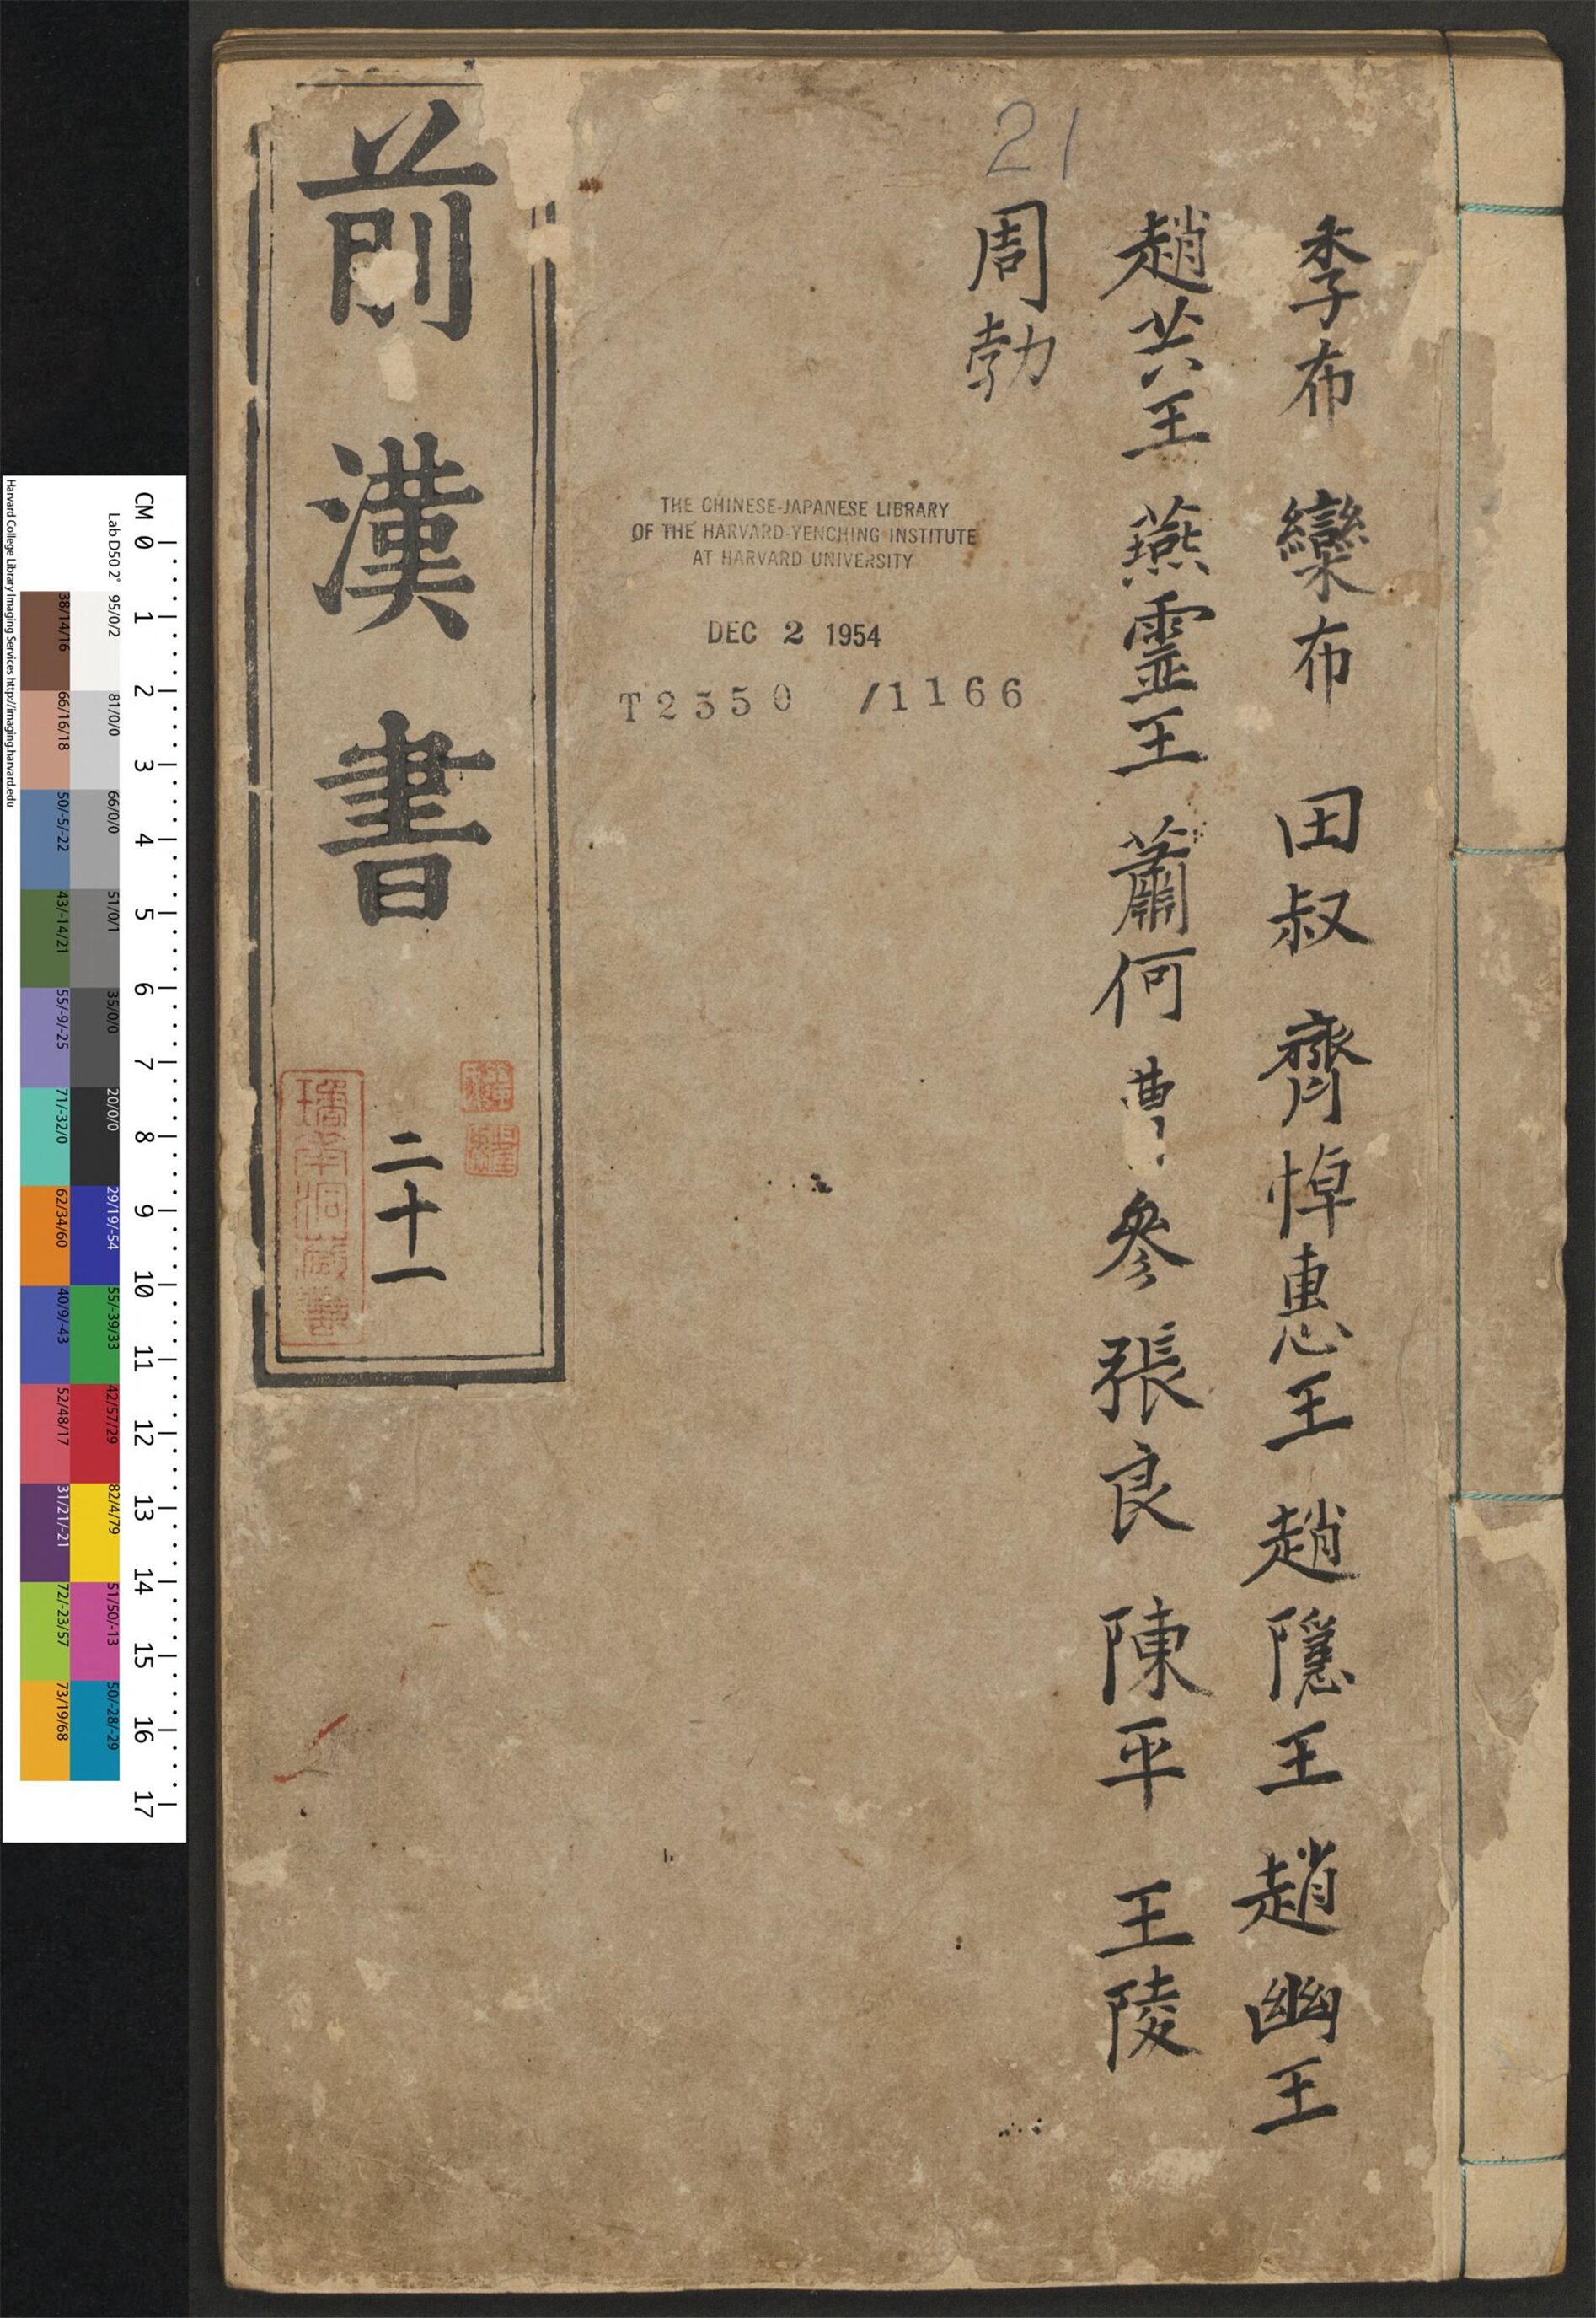 季布 欒布 田叔 齊悼惠王 趙隱王 趙幽王
趙共王 燕靈王 蕭何 曹參 張良 陳平 王陵
周勃
21
THE CHINESE-JAPANESE LIBRARY
OF THE HARVARD-YENCHING INSTITUTE
AT HARVARD UNIVERSITY
DEC 2 1954
T2550 /1166
前漢書
二十一
CM 0 1 2 3 4 5 6 7 8 9 10 11 12 13 14 15 16 17
Lab D50 2° 95/0/2 81/0/0 66/0/0 51/0/1 35/0/0 20/0/0 29/19/-54 55/-39/33 42/57/29 82/4/79 51/50/-13 50/-28/-29
38/14/16 66/16/18 50/-5/-22 43/-14/21 55/-9/-25 71/-32/0 62/34/60 40/9/-43 52/48/17 31/21/-21 72/-23/57 73/19/68
Harvard College Library Imaging Services http://imaging.harvard.edu